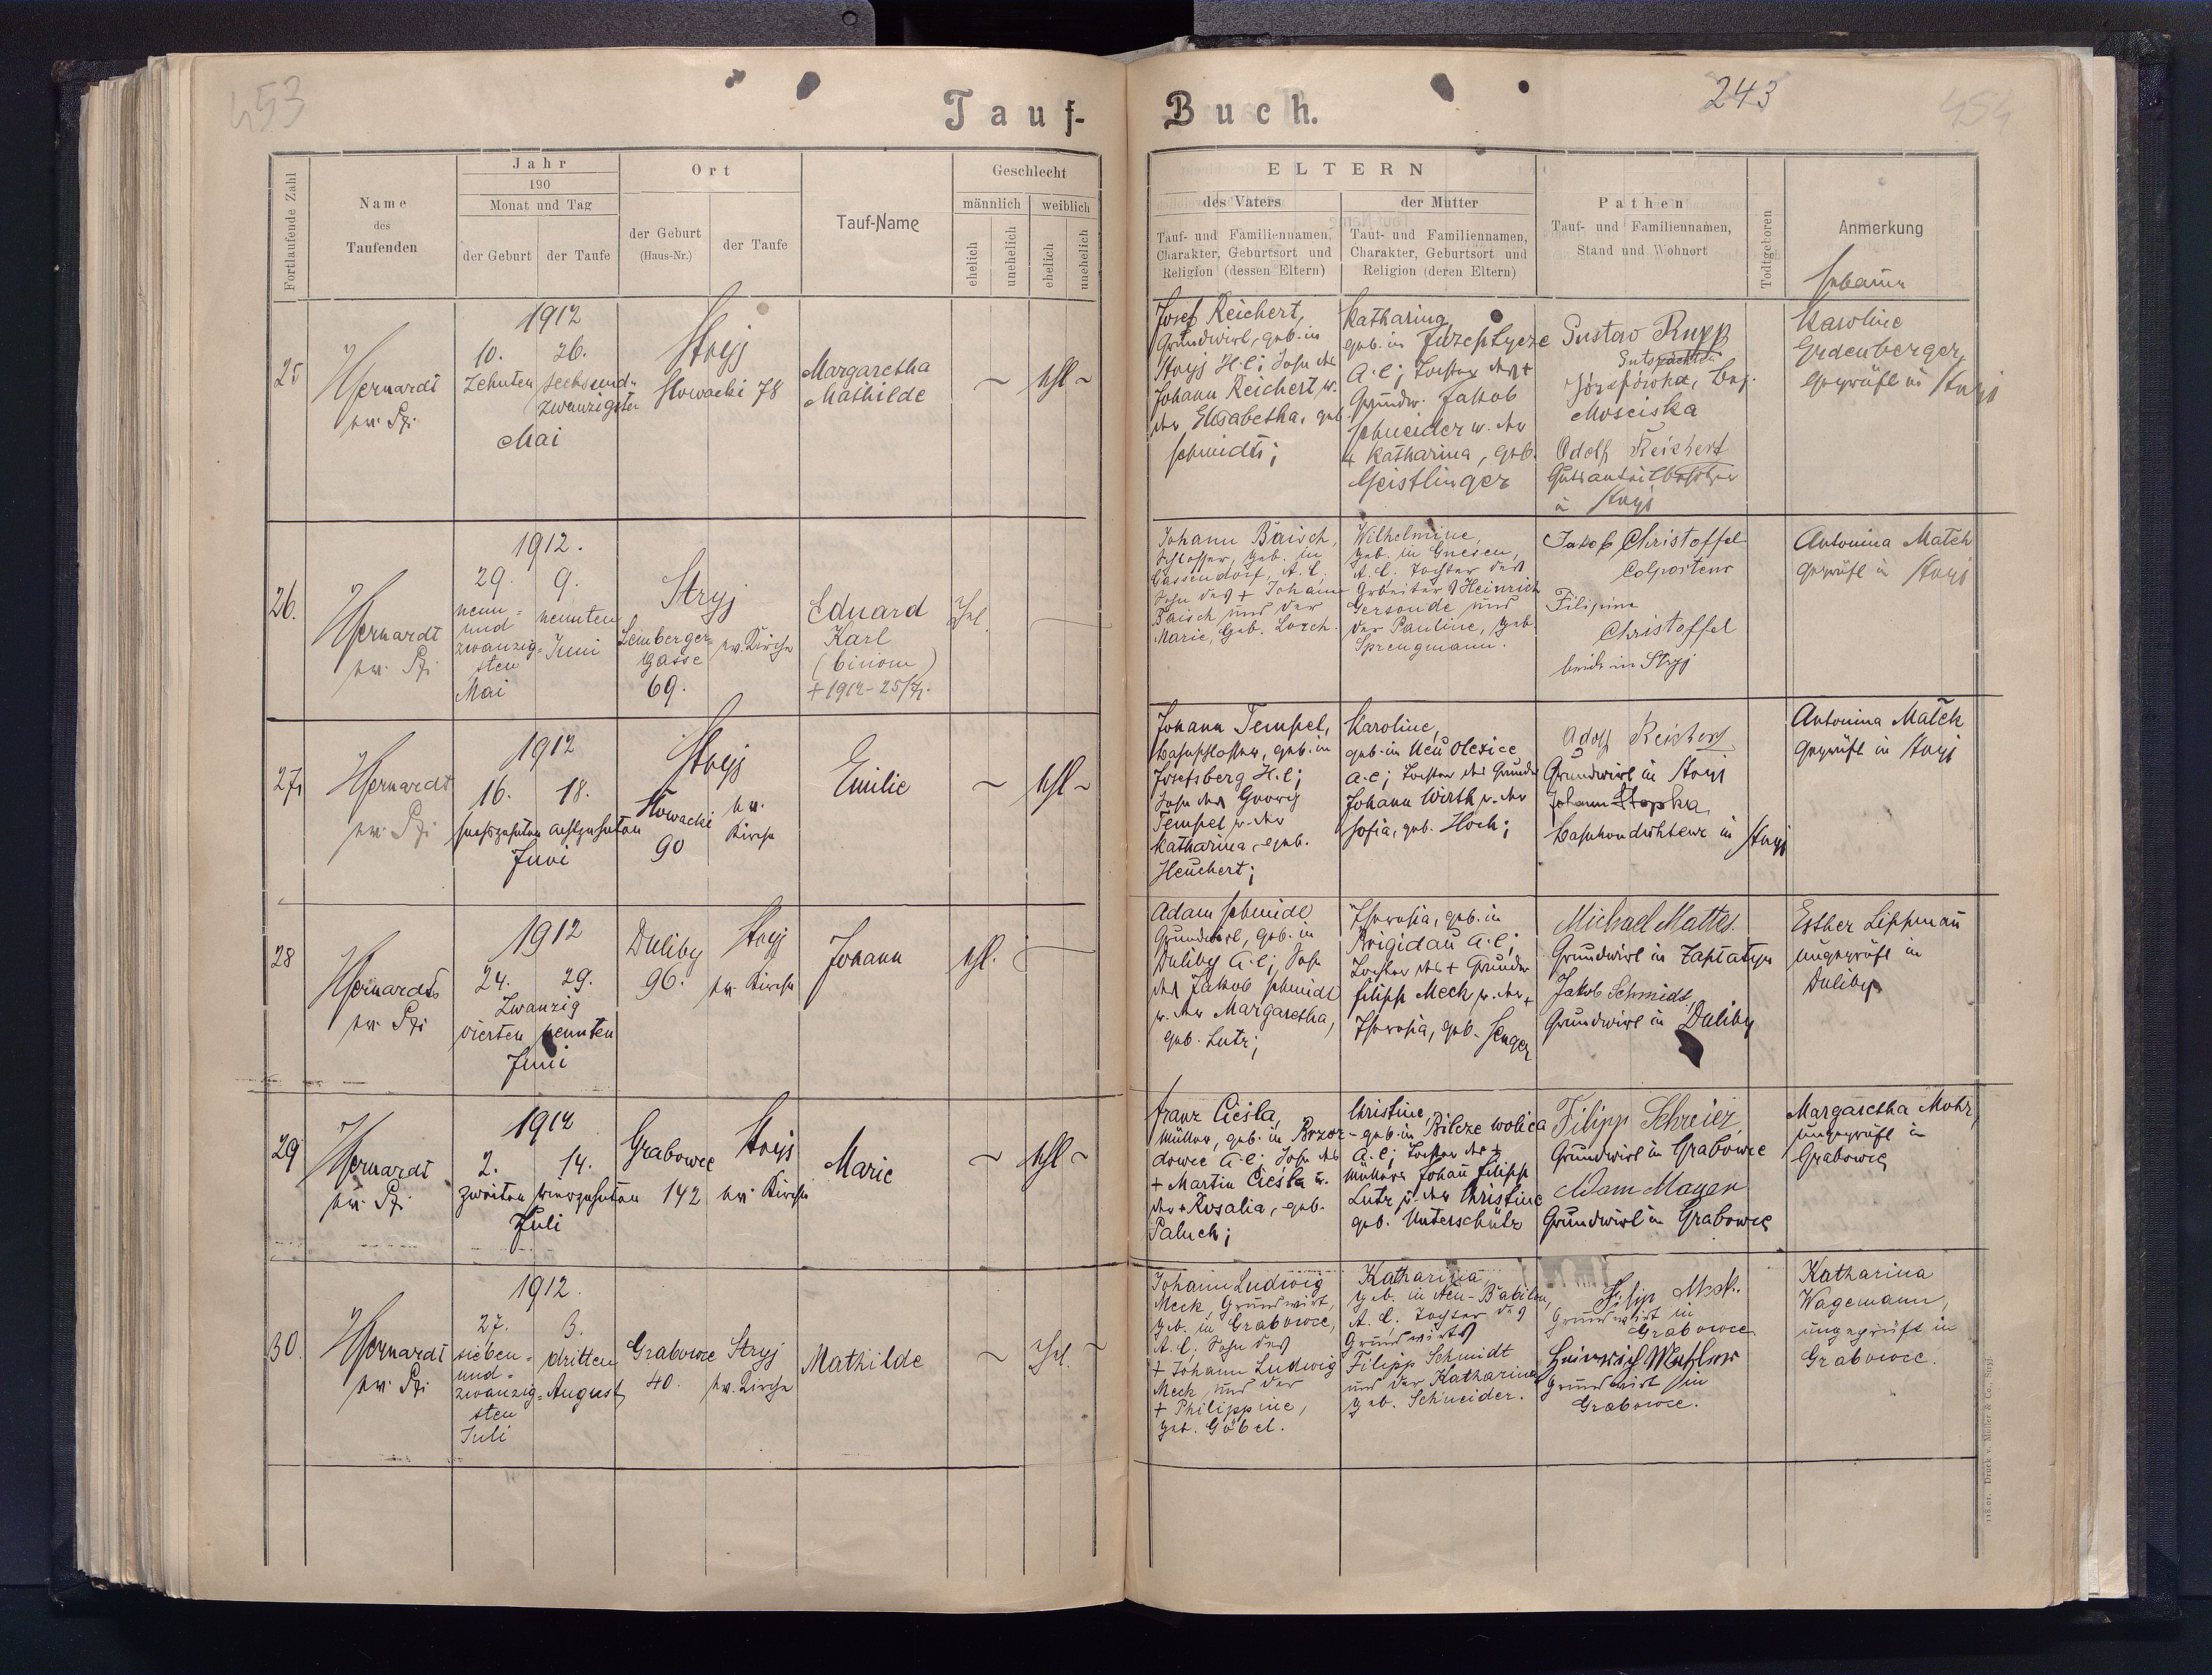 453
Tauf-
Fortlaufende Zahl
Name
des
Taufenden
Jahr
190
Monat und Tag
der Geburt
der Taufe
Ort
der Geburt
(Haus-Nr.)
der Taufe
Tauf-Name
Geschlecht
männlich
weiblich
ehelich
unehelich
ehelich
unehelich
25
1912
10. 26.
Zehnten sechsund-
zwanzigsten
Mai
Stryj
Słowacki 78
Margaretha
Mathilde
26.
1912.
29. 9.
neun- neunten
und
zwanzig- Juni
sten
Mai
Stryj
Lemberger- ev. Kirche
gasse
69.
Eduard
Karl
+ 1912-25/7.
Ehel.
27
1912
16. 18.
sechszehnten achtzehnten
Juni
Stryj
Słowacki ev.
Kirche
90
Emilie
28
1912
24. 29.
Zwanzig
vierten neunten
Juni
Duliby Stryj
96. ev. Kirche
Johann
29
1912
2. 14.
zweiten vierzehnten
Juli
Grabowce Stryj
142 ev. Kirche
Marie
30.
1912.
27. 3.
sieben- dritten
und-
zwanzig- August
sten
Juli
Grabowce Stryj
40. ev. Kirche
Mathilde
Ehel.
Buch.
243
454
ELTERN
des Vaters
Tauf- und Familiennamen,
Charakter, Geburtsort und
Religion (dessen Eltern)
der Mutter
Tauf- und Familiennamen,
Charakter, Geburtsort und
Religion (deren Eltern)
Pathen
Tauf- und Familiennamen,
Stand und Wohnort
Todtgeboren
Anmerkung
Hebamme
Josef Reichert,
Grundwirt, geb. in
Stryj H.C; Sohn des
Johann Reichert u.
der Elisabetha, geb.
Schmidt;
Katharina
geb. in
A.C; Tochter des +
Grundw. Jakob
Schneider u. der
+ Katharina, geb.
Geistlinger
Gustav Rupp
Gutspächter
Józefówka, Bez.
Mosciska
Adolf Reichert
Gutsanteilbesitzer
in Stryj
Karoline
Erdenberger,
geprüft in Stryj
Johann Baisch,
Schlosser, geb. in
Gassendorf, A.C,
Sohn des + Johann
Baisch und der
Marie, geb. Lorch.
Wilhelmine,
geb. in Gnesen,
A.C. Tochter des
Arbeiters Heinrich
Gersonde und
der Pauline, geb.
Sprengmann.
Jakob Christoffel
Colporteur
Filipine
Christoffel
beide in Stryj
Antonina Matek
geprüft in Stryj
Johann Tempel,
Bahnschlosser, geb. in
Josefsberg H.C;
Sohn des Georg
Tempel u. der
Katharina, geb.
Heuchert;
Karoline,
geb. in Neu Olesice
A.C; Tochter des Grundw
Johann Wirth u. der
Sofia, geb. Hoch;
Adolf Reichert
Grundwirt in Stryj
Johann Stopka,
Bahnkondukteur in Stryj
Antonina Matek
geprüft in Stryj
Adam Schmidt
Grundwirt, geb. in
Duliby A.C; Sohn
des Jakob Schmidt
u. der Margaretha,
geb. Lutz;
Theresia, geb. in
Brigidau A.C;
Tochter des + Grundw
Filipp Meck u. der +
Theresia, geb. Senger
Michael Mattes
Grundwirt in Zaplatyn
Jakob Schmidt,
Grundwirt in Duliby
Esther Lippmann
ungeprüft in
Duliby
Franz Cieśla,
Müller, geb. in Brzoz-
dowce A.C; Sohn des
+ Martin Cieśla u.
der + Rosalia, geb.
Paluch;
Christine,
geb. in Bilcze wolica
A.C; Tochter des +
Müllers Johann Filipp
Lutz u. der Christine
geb. Unterschütz
Filipp Schreier,
Grundwirt in Grabowce
Adam Mayer
Grundwirt in Grabowce
Margaretha Mohr,
ungeprüft in
Grabowce
Johann Ludwig
Meck, Grundwirt,
geb. in Grabowce,
A.C, Sohn des
+ Johann Ludwig
Meck, und der
+ Philippine,
geb. Göbel.
Katharina,
geb. in Neu-Babilon,
A.C. Tochter des
Grundwirts
Filipp Schmidt
und der Katharina
geb. Schneider.
Filip Meck
Grundwirt in
Grabowce.
Heinrich
Grundwirt in
Grabowce.
Katharina
Wagemann,
ungeprüft in
Grabowce.
118.01. Druck v. Müller & Co., Stryj.